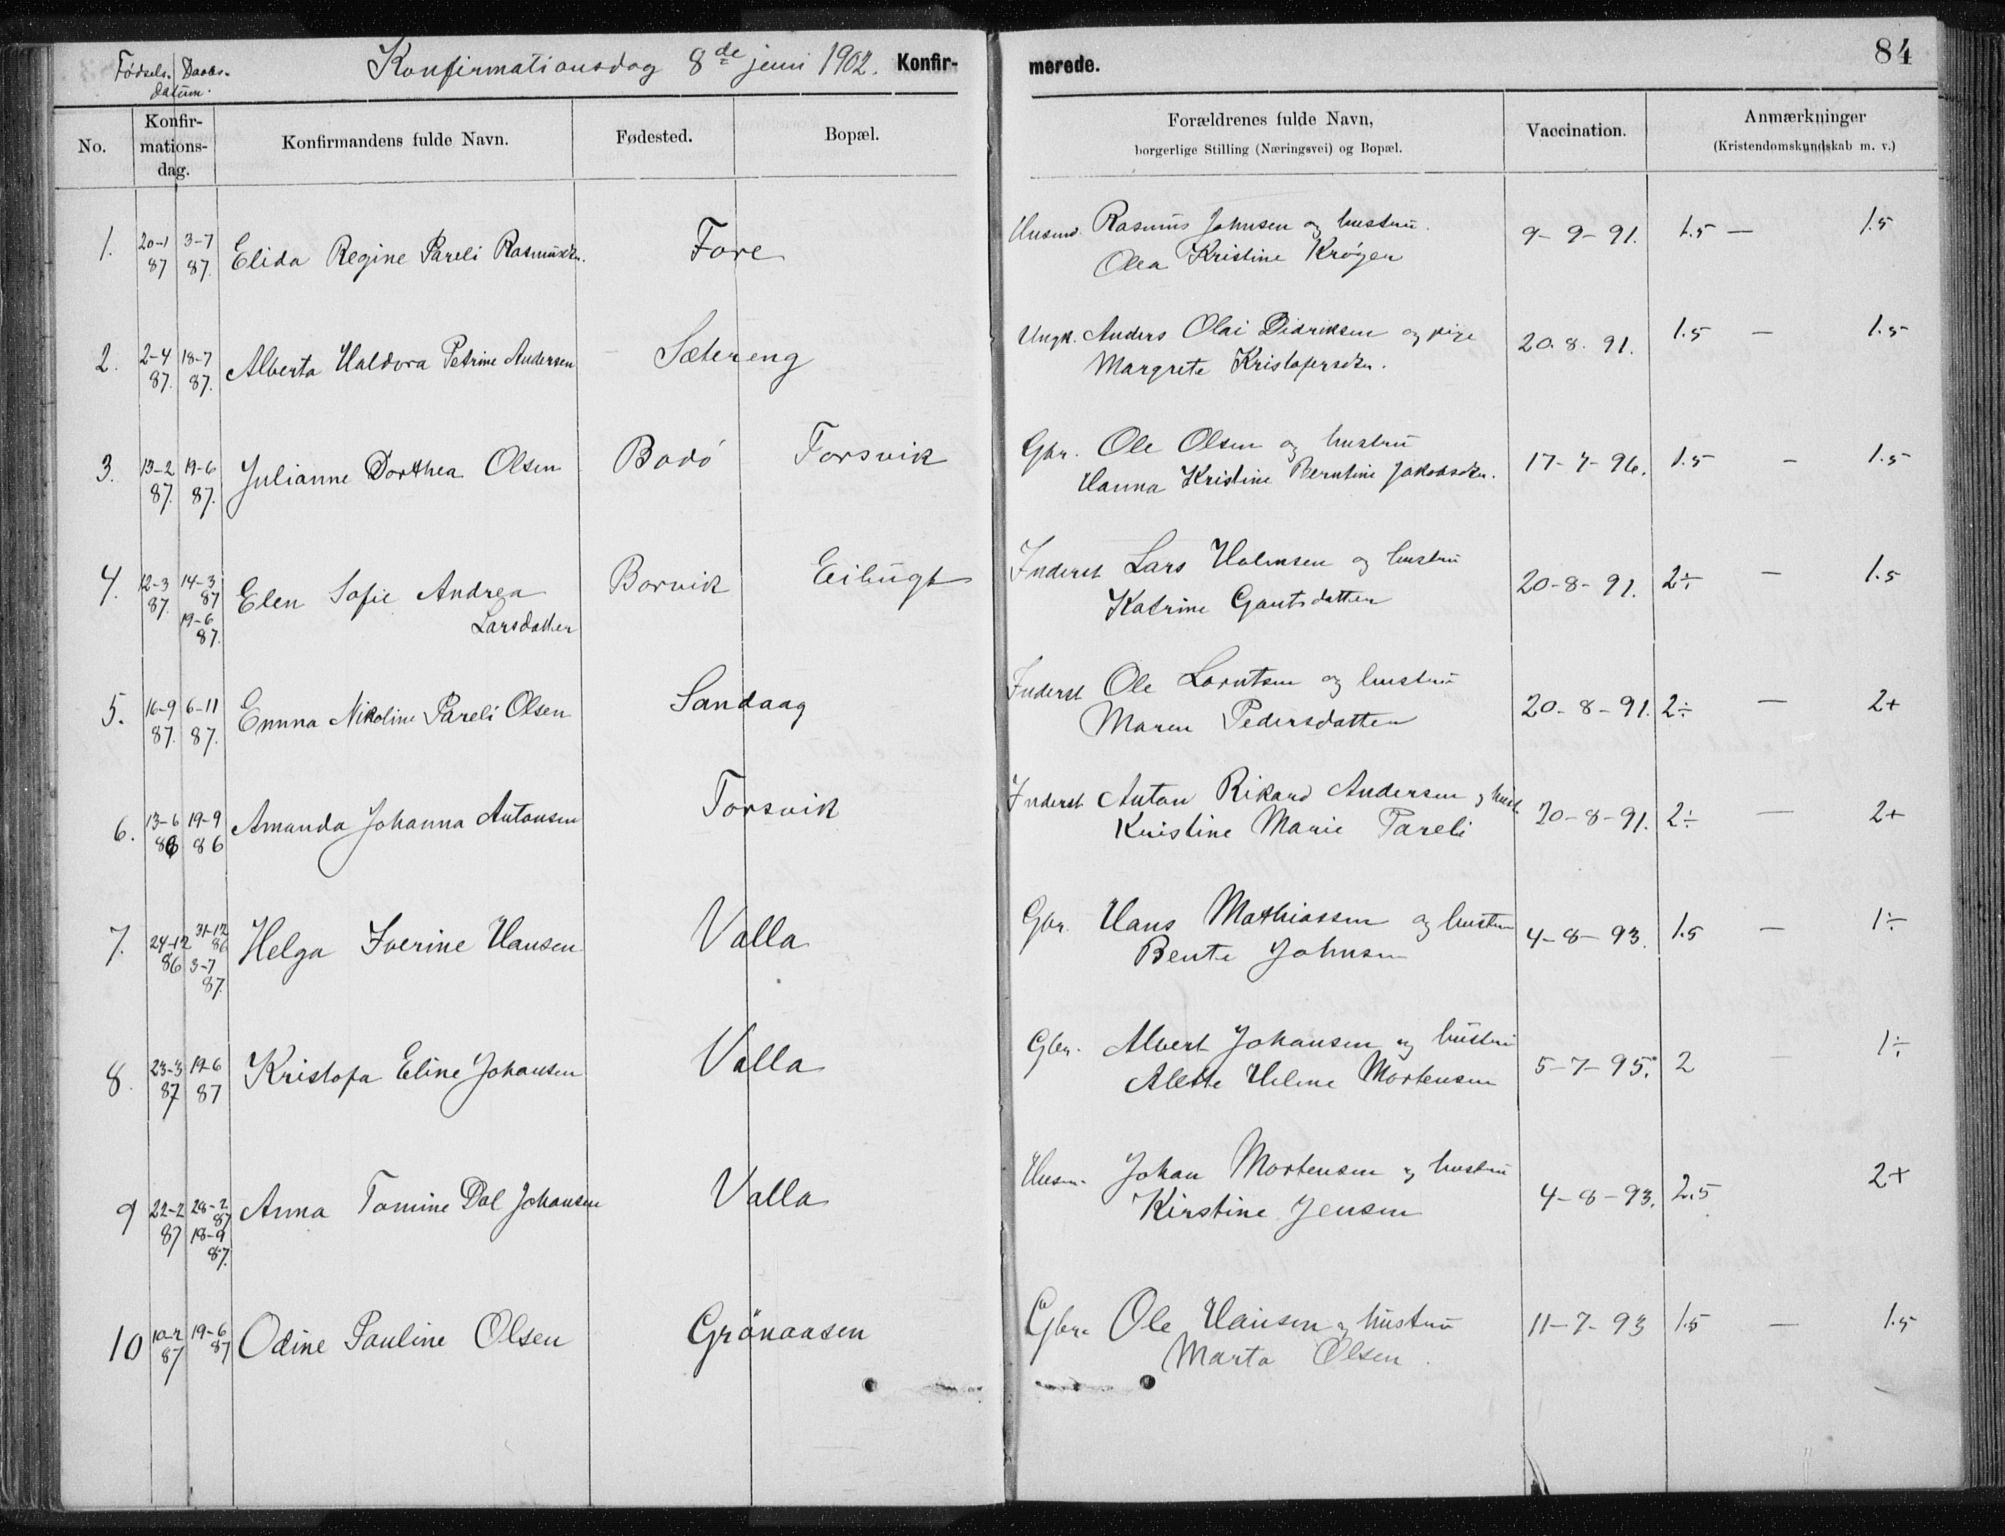 Fødsels. Daabs-
datum.
Konfirmationsdag 8de juni 1902. Konfir-
merede. 84
No. Konfir-mations-dag. Konfirmandens fulde Navn. Fødested. Bopæl. Forældrenes fulde Navn, borgerlige Stilling (Næringsvei) og Bopæl. Vaccination. Anmærkninger (Kristendomskundskab m. v.)
1. 20-1 87 3-7 87. Elida Regine Pareli Rasmusdtr. Fore Husmd. Rasmus Johnsen og hustru. 9-9-91. 1.5 — 1.5
Olea Kristine Krøyer
2. 2-4 87. 18-7 87. Alberta Haldora Petrine Andersen Sætereng Ungk. Anders Olai Didriksen og pige 20.8.91. 1.5 — 1.5
Margrete Kristofersdtr.
3. 13-2 87. 19-6 87. Julianne Dorthea Olsen Bodö Torsvik Gbr. Ole Olsen og hustru 17-7-96. 1.5 – 1.5
Hanna Kristine Berntine Jakobsdtr.
4. 12-3 87. 14-3 87 Elen Sofie Andrea Borvik Eibugt Inderst Lars Holmsen og hustru 20-8-91. 2÷ — 1.5
19-6 87. Larsdatter Katrine Gautsdatter
5. 16-9 87. 6-11 87. Emma Nikoline Pareli Olsen Sandaag Inderst Ole Lorntsen og hustru 20-8-91. 2÷ — 2+
Maren Pedersdatter
6. 13-6 86 19-9 86 Amanda Johanna Antonsen Torsvik Inderst Anton Rikard Andersen og hust. 20-8-91. 2÷ — 2+
Kristine Marie Pareli
7. 24-12 86 31-12 86 Helga Iverine Hansen Valla Gbr. Hans Mathiassen og hustru 4-8-93. 1.5 – 1÷
3-7 87. Bente Johnsen
8. 23-3 87 19-6 87 Kristofa Eline Johansen Valla Gbr. Albert Johansen og hustru 5-7-95. 2 – 1÷
Alette Helene Mortensen
9 22-2 87 28-2 87 Anna Tomine Dal Johansen Valla Husm. Johan Mortensen og hustru 4-8-93. 2.5 2+
18-9 87. Kirstine Jensen
10 10-2 87 19-6 87 Odine Pauline Olsen Grönaasen Gbr. Ole Hansen og hustru 11-7-93 1.5 — 1.5
Marta Olsen.